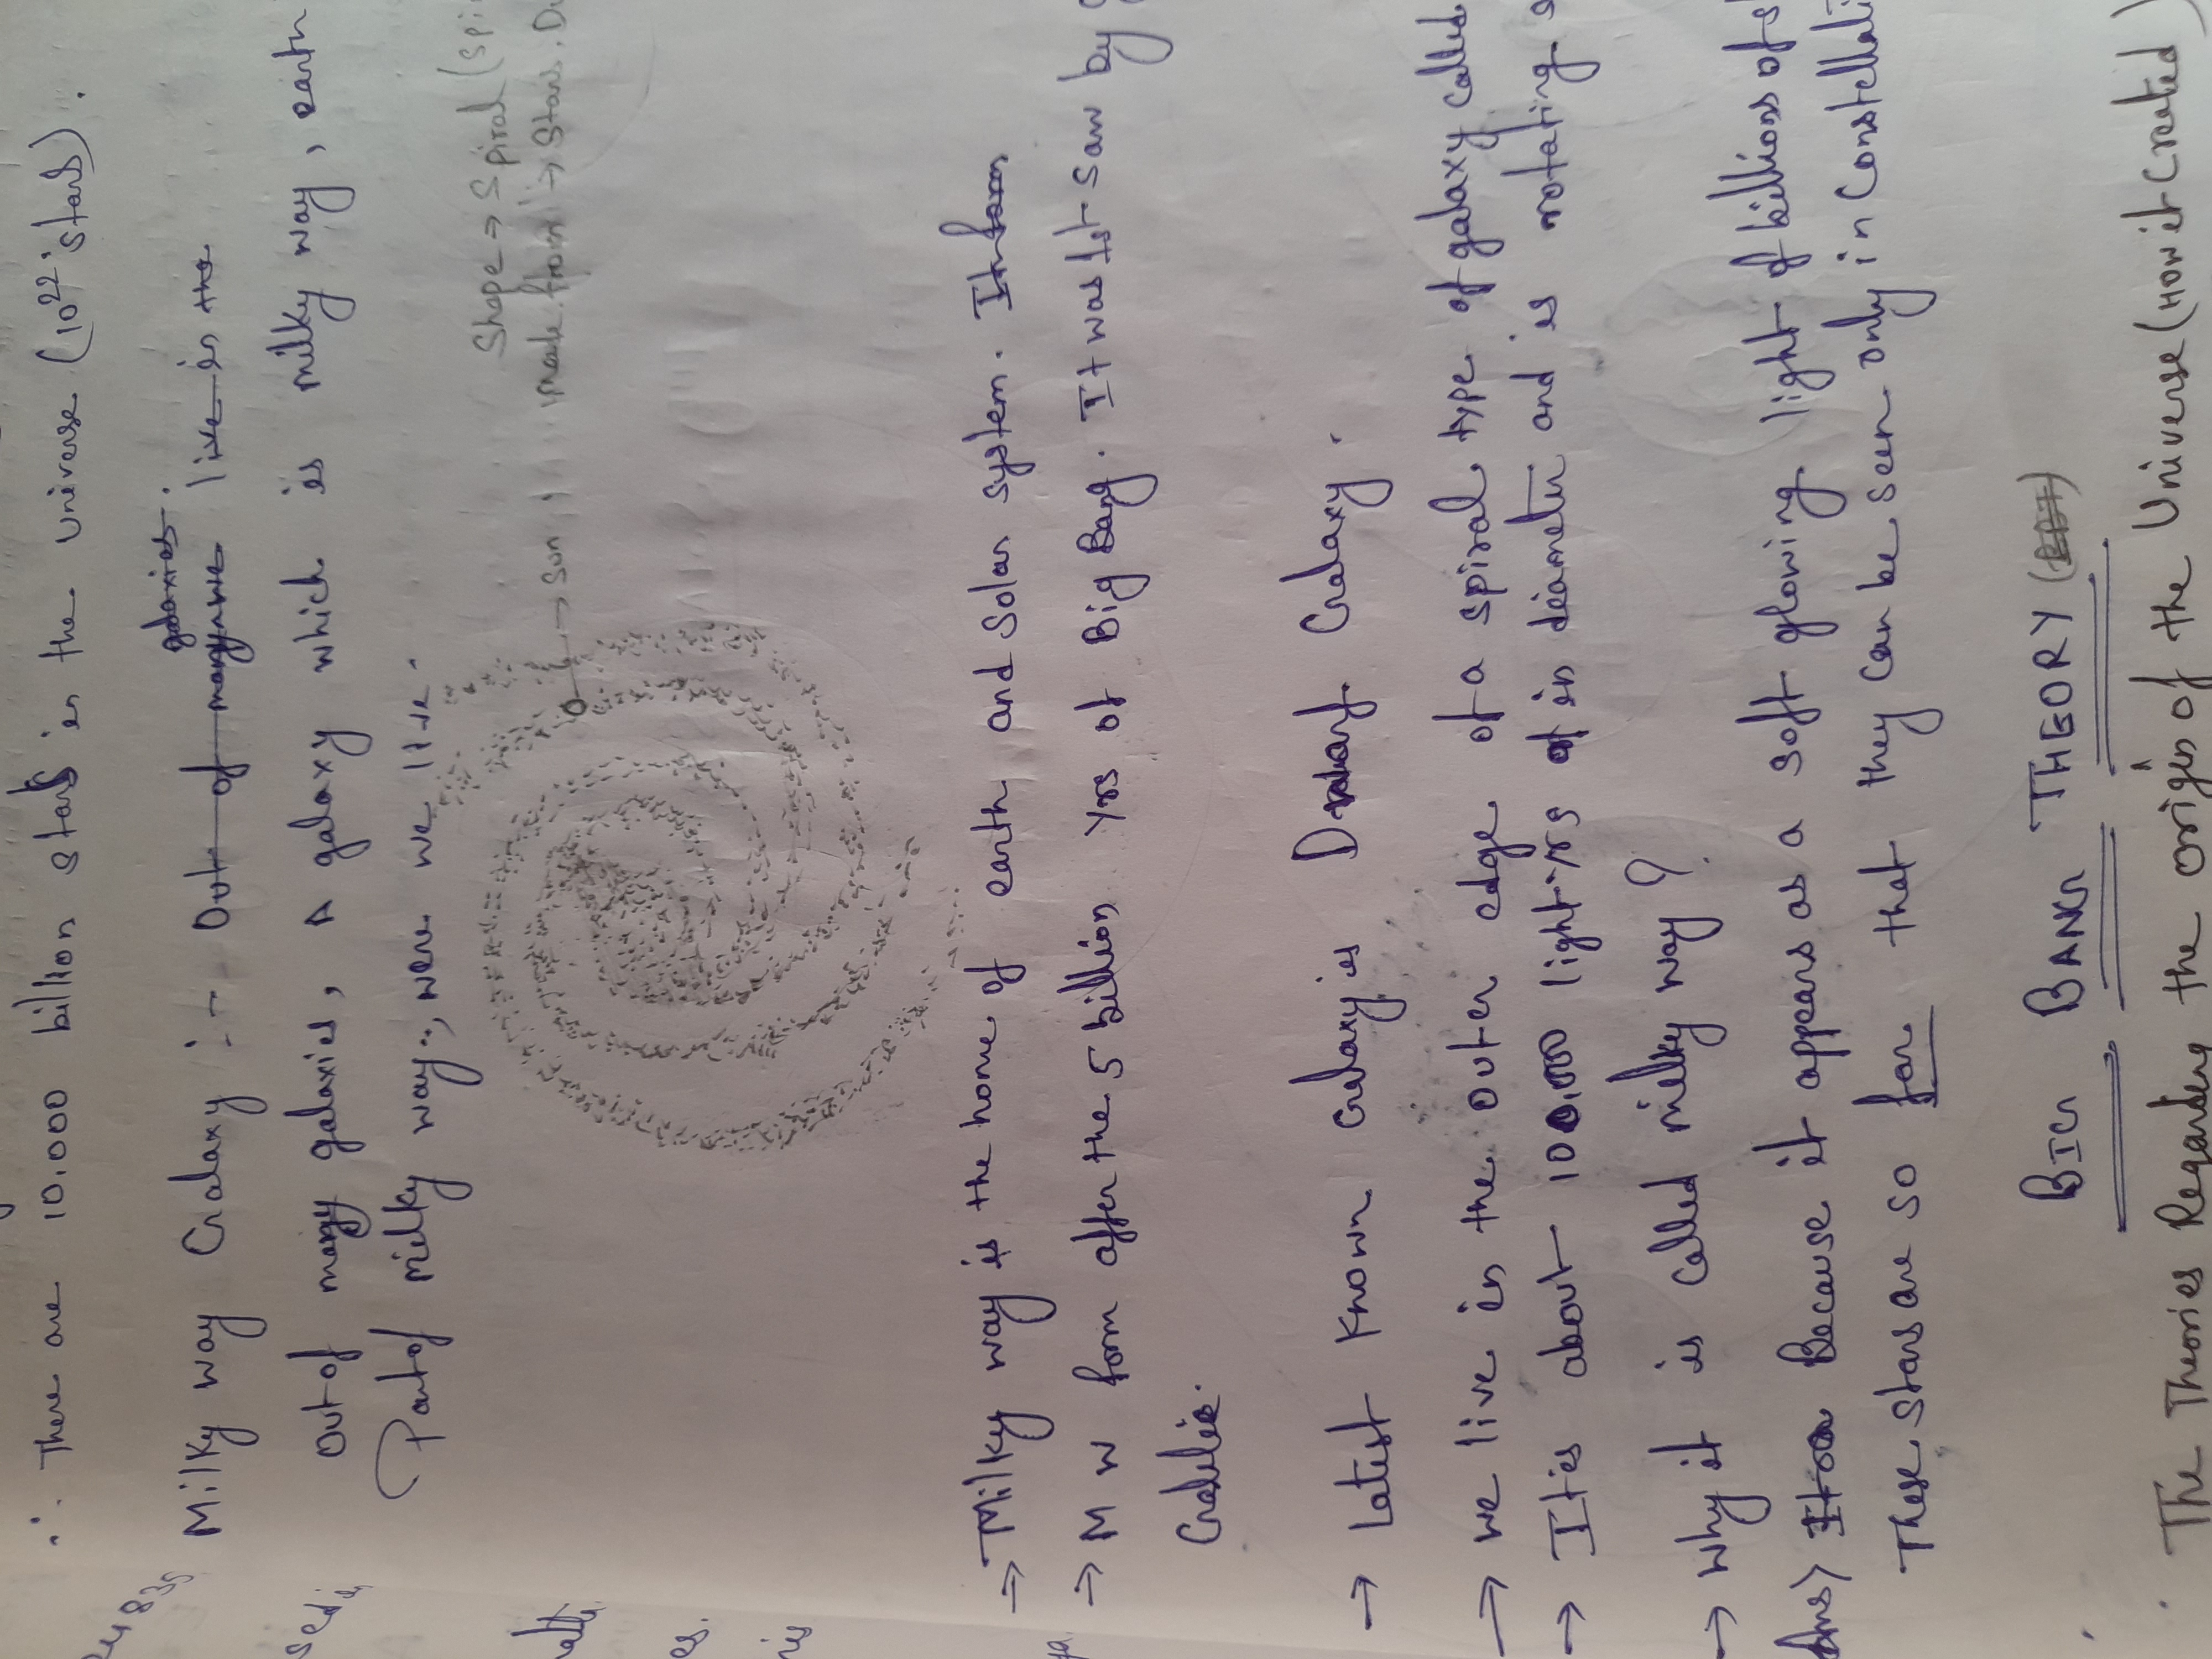 ∴ There are 10,000 billion stars in the universe (10²² stars).
galaxies.
Milky way Galaxy :- Out of many we live is the
Out of many galaxies, A galaxy which is milky way, earth
Part of milky way, were we live.
Shape → Spiral (Spi
→ Sun made from → Stars, Du
→ Milky way is the home of earth and Solar system. It form
→ M W form after the 5 billion Yrs of Big Bang. It was 1st saw by G
Galelie.
→ Latest Known Galaxy is Dwarf Galaxy.
→ we live in the outer edge of a spiral type of galaxy called
→ It is about 100,000 light yrs of in diameter and is rotating
→ Why it is called milky way?
Ans> Because it appears as a soft glowing light of billions of st
These stars are so far that they can be seen only in Constellati
BIG BANG THEORY
The Theories Regarding the origin of the Universe (How it created)